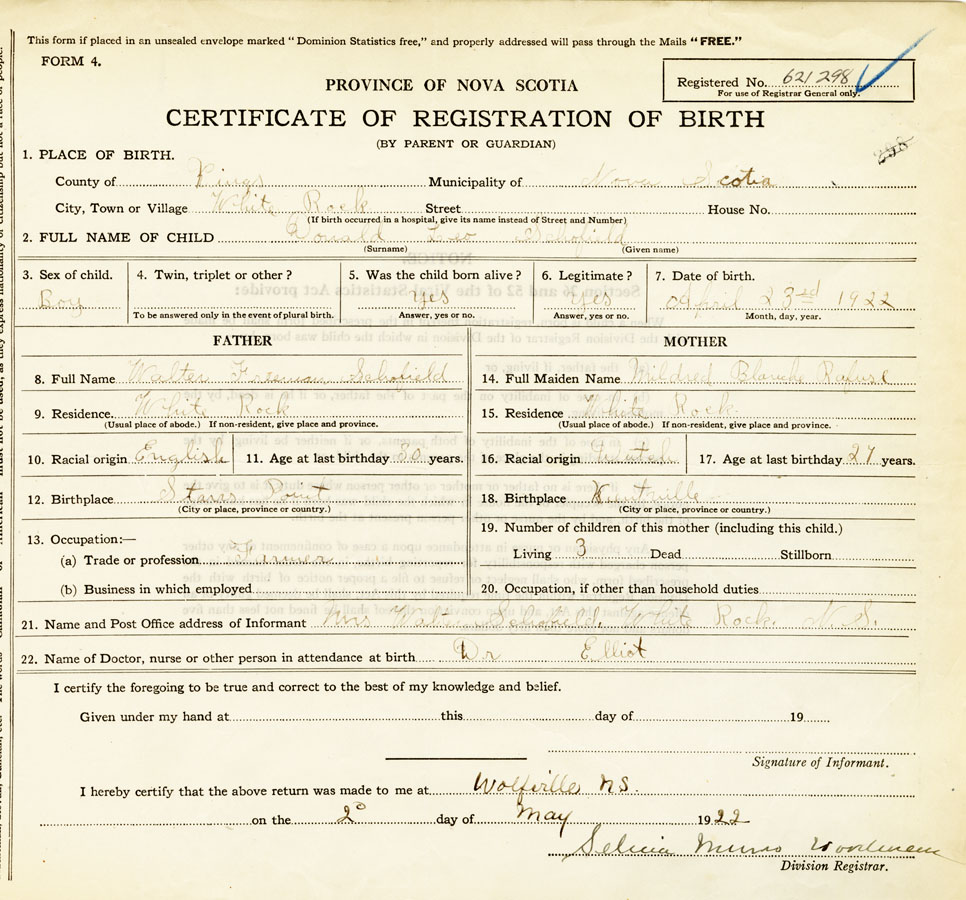 This form if placed in an unsealed envelope marked "Dominion Statistics free," and properly addressed will pass through the Mails "FREE."
FORM 4.
Registered No. 621298
For use of Registrar General only.
PROVINCE OF NOVA SCOTIA
CERTIFICATE OF REGISTRATION OF BIRTH
(BY PARENT OR GUARDIAN)
298
1. PLACE OF BIRTH.
County of Kings Municipality of Nova Scotia
City, Town or Village White Rock Street House No.
(If birth occurred in a hospital, give its name instead of Street and Number)
2. FULL NAME OF CHILD Donald Leo Schofield
(Surname) (Given name)
3. Sex of child. 4. Twin, triplet or other? 5. Was the child born alive? 6. Legitimate? 7. Date of birth.
Boy Yes Yes April 23rd 1922
To be answered only in the event of plural birth. Answer, yes or no. Answer, yes or no. Month, day, year.
FATHER MOTHER
8. Full Name Walter Freeman Schofield 14. Full Maiden Name Mildred Blanche Rafuse
9. Residence. White Rock 15. Residence White Rock
(Usual place of abode.) If non-resident, give place and province. (Usual place of abode.) If non-resident, give place and province.
10. Racial origin English 11. Age at last birthday 30 years. 16. Racial origin Dutch 17. Age at last birthday 27 years.
12. Birthplace Starrs Point 18. Birthplace Kentville
(City or place, province or country.) (City or place, province or country.)
19. Number of children of this mother (including this child.)
13. Occupation:—
Living 3 Dead Stillborn
(a) Trade or profession Farmer
(b) Business in which employed 20. Occupation, if other than household duties
21. Name and Post Office address of Informant Mrs Walter Schofield White Rock. N.S.
22. Name of Doctor, nurse or other person in attendance at birth Dr Elliot
I certify the foregoing to be true and correct to the best of my knowledge and belief.
Given under my hand at this day of 19
Signature of Informant.
I hereby certify that the above return was made to me at Wolfville NS.
on the 2 day of May 1922
Selina Munro Woodman
Division Registrar.